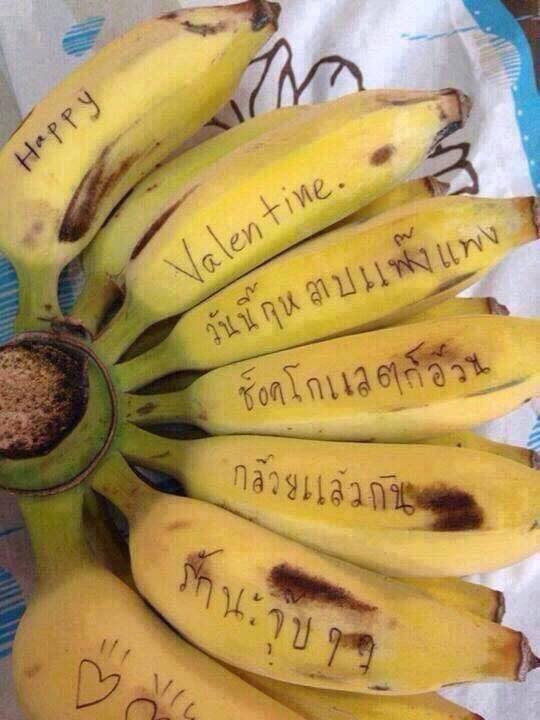 Happy
Valentine.
วันนี้กุหลาบแพ๊งแพง
ช็อคโกแลตก็อ้วน
กล้วยแล้วกัน
รักนะจุ๊บๆๆ